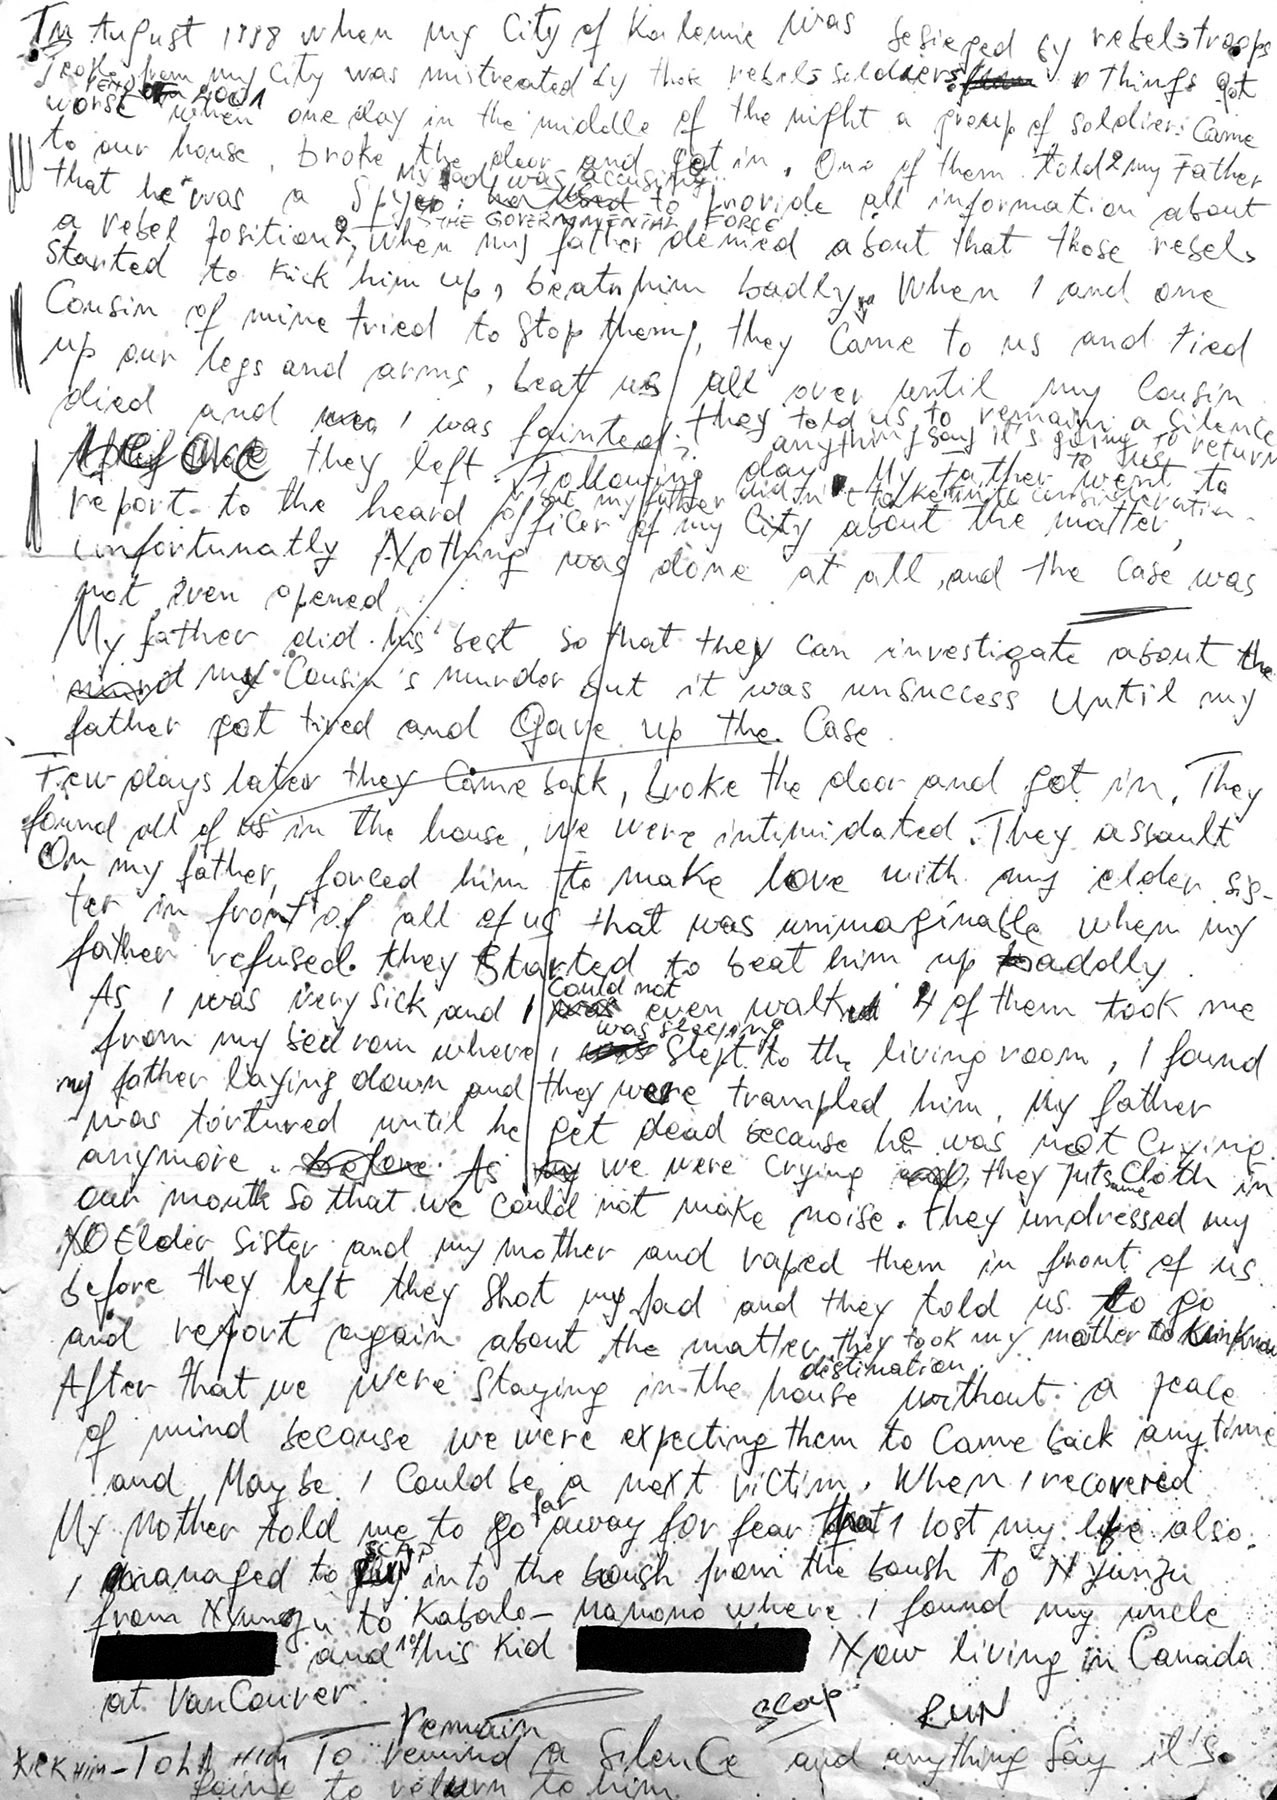 In August 1998 when my City of Kalemie was besieged by rebels troops
People from my City was mistreated by those rebels soldiers things got
worse YEAR 2001 when one day in the middle of the night a group of soldiers Came
to our house, broke the door and got in. One of them told my Father
that he was a Spy
My Dad was accusing
to provide all information about
THE GOVERNMENTAL FORCE
a rebel position, when my father denied about that those rebels
started to kick him up, beatn him badly. When I and one
Cousin of mine tried to stop them, they Came to us and tied
up our legs and arms, beat us all over until my Cousin
died and I was fainted; they told us to remain a silence
anything say it's going to return
to us
Before they left. Following day My Father went to
but my father didn't take into consideration.
report to the heard officer of my City about the matter,
unfortunatly Nothing was done at all, and the Case was
not even opened
My father did his best so that they can investigate about the
my Cousin's murder but it was unsuccess Until my
father got tired and Gave up the Case.
Few days later they Came back, broke the door and got in. They
found all of us in the house, we were intimidated. They assault
On my father, forced him to make love with my elder sis-
ter in front of all of us that was unimaginable when my
father refused. they Started to beat him up baddly.
As I was very sick and I Could not even walk 4 of them took me
from my bedroom where I was sleeping Slept to the living room, I found
my father laying down and they were trampled him. My father
was tortured until he get dead because he was not Crying
anymore. As we were Crying they puts some Cloth in
our mouth so that we could not make noise. they undressed my
Elder Sister and my mother and raped them in front of us
before they left they Shot my Dad and they told us to go
and report again about the matter, they took my mother to unknown
destination.
After that we were Staying in the house without a peace
of mind because we were expecting them to Came back anytime
and Maybe I Could be a next victim. When I recovered
My Mother told me to go far away for fear that I lost my life also.
I managed to SCAP RUN into the boush from the boush to Nyunzu
from Nyunzu to Kabalo - Manono where I found my uncle
and his Kid Now living in Canada
at VanCouver.
Remain SCAP RUN
KICK HIM - TOLD HIM TO remind a SilenCe and anything Say it's
going to return to him